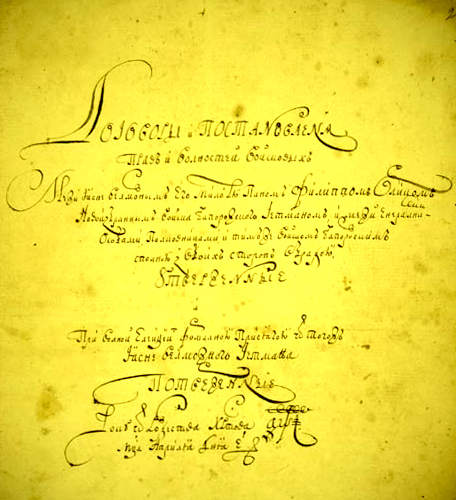 Договоры и постановленя
правъ и волностей войсковыхъ
Межи Ясне велможнымъ Его Млстю Паномъ Филиппомъ Орликомъ
Новообраннимъ войска Запорожского Гетманомъ, и межи Енерални-
Особами Полковниками и тимъ же войскомъ Запорозкимъ
сполною з обоихъ сторонъ обрадою,
Утверженные
и
При волной Елекцїи формалною Присягою ѿ того жъ
Ясне велможного Гетмана
Потверженные
Року ѿ Рожества Хрстова
Мца Априля дня